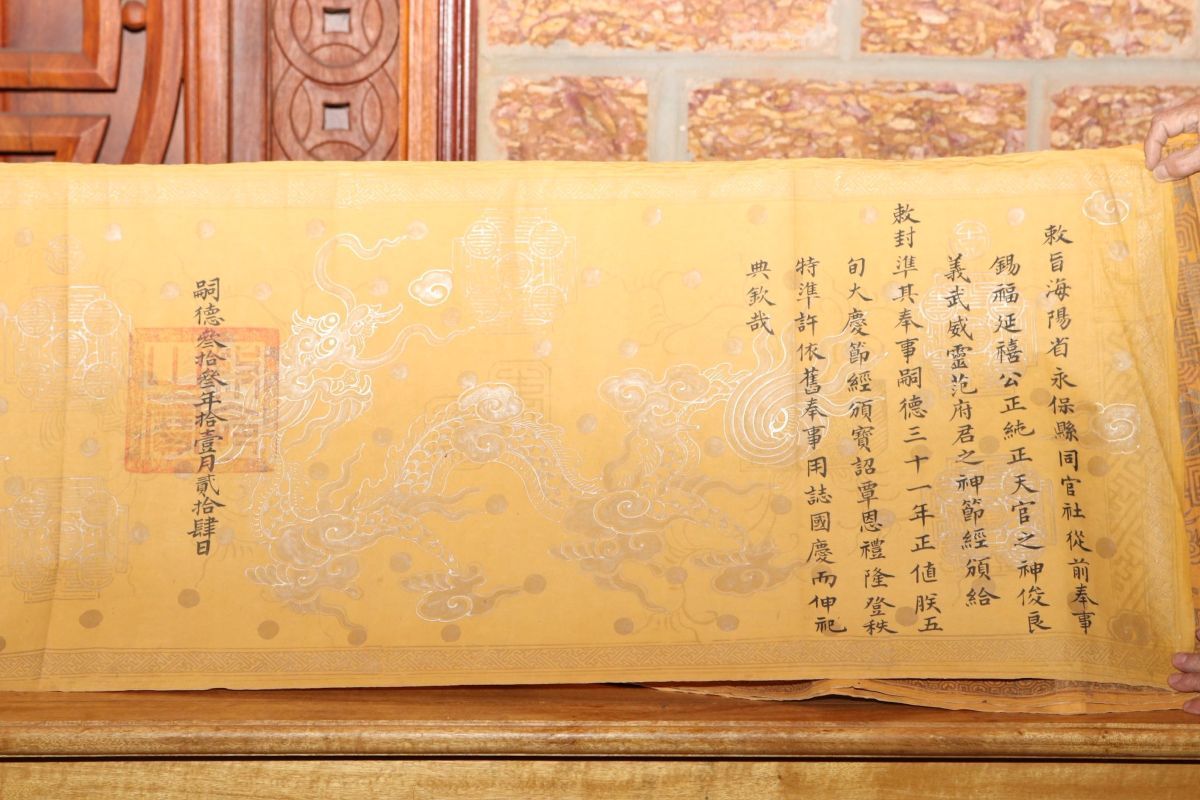 敕旨海陽省永保縣同官社從前奉事
錫福延禧公正純正天官之神俊良
義武威靈范府君之神節經頒給
敕封準其奉事嗣德三十一年正值朕五
旬大慶節經頒寶詔覃恩禮隆登秩
特準許依舊奉事用誌國慶而伸祀
典欽哉
嗣德叄拾叄年拾壹月貳拾肆日